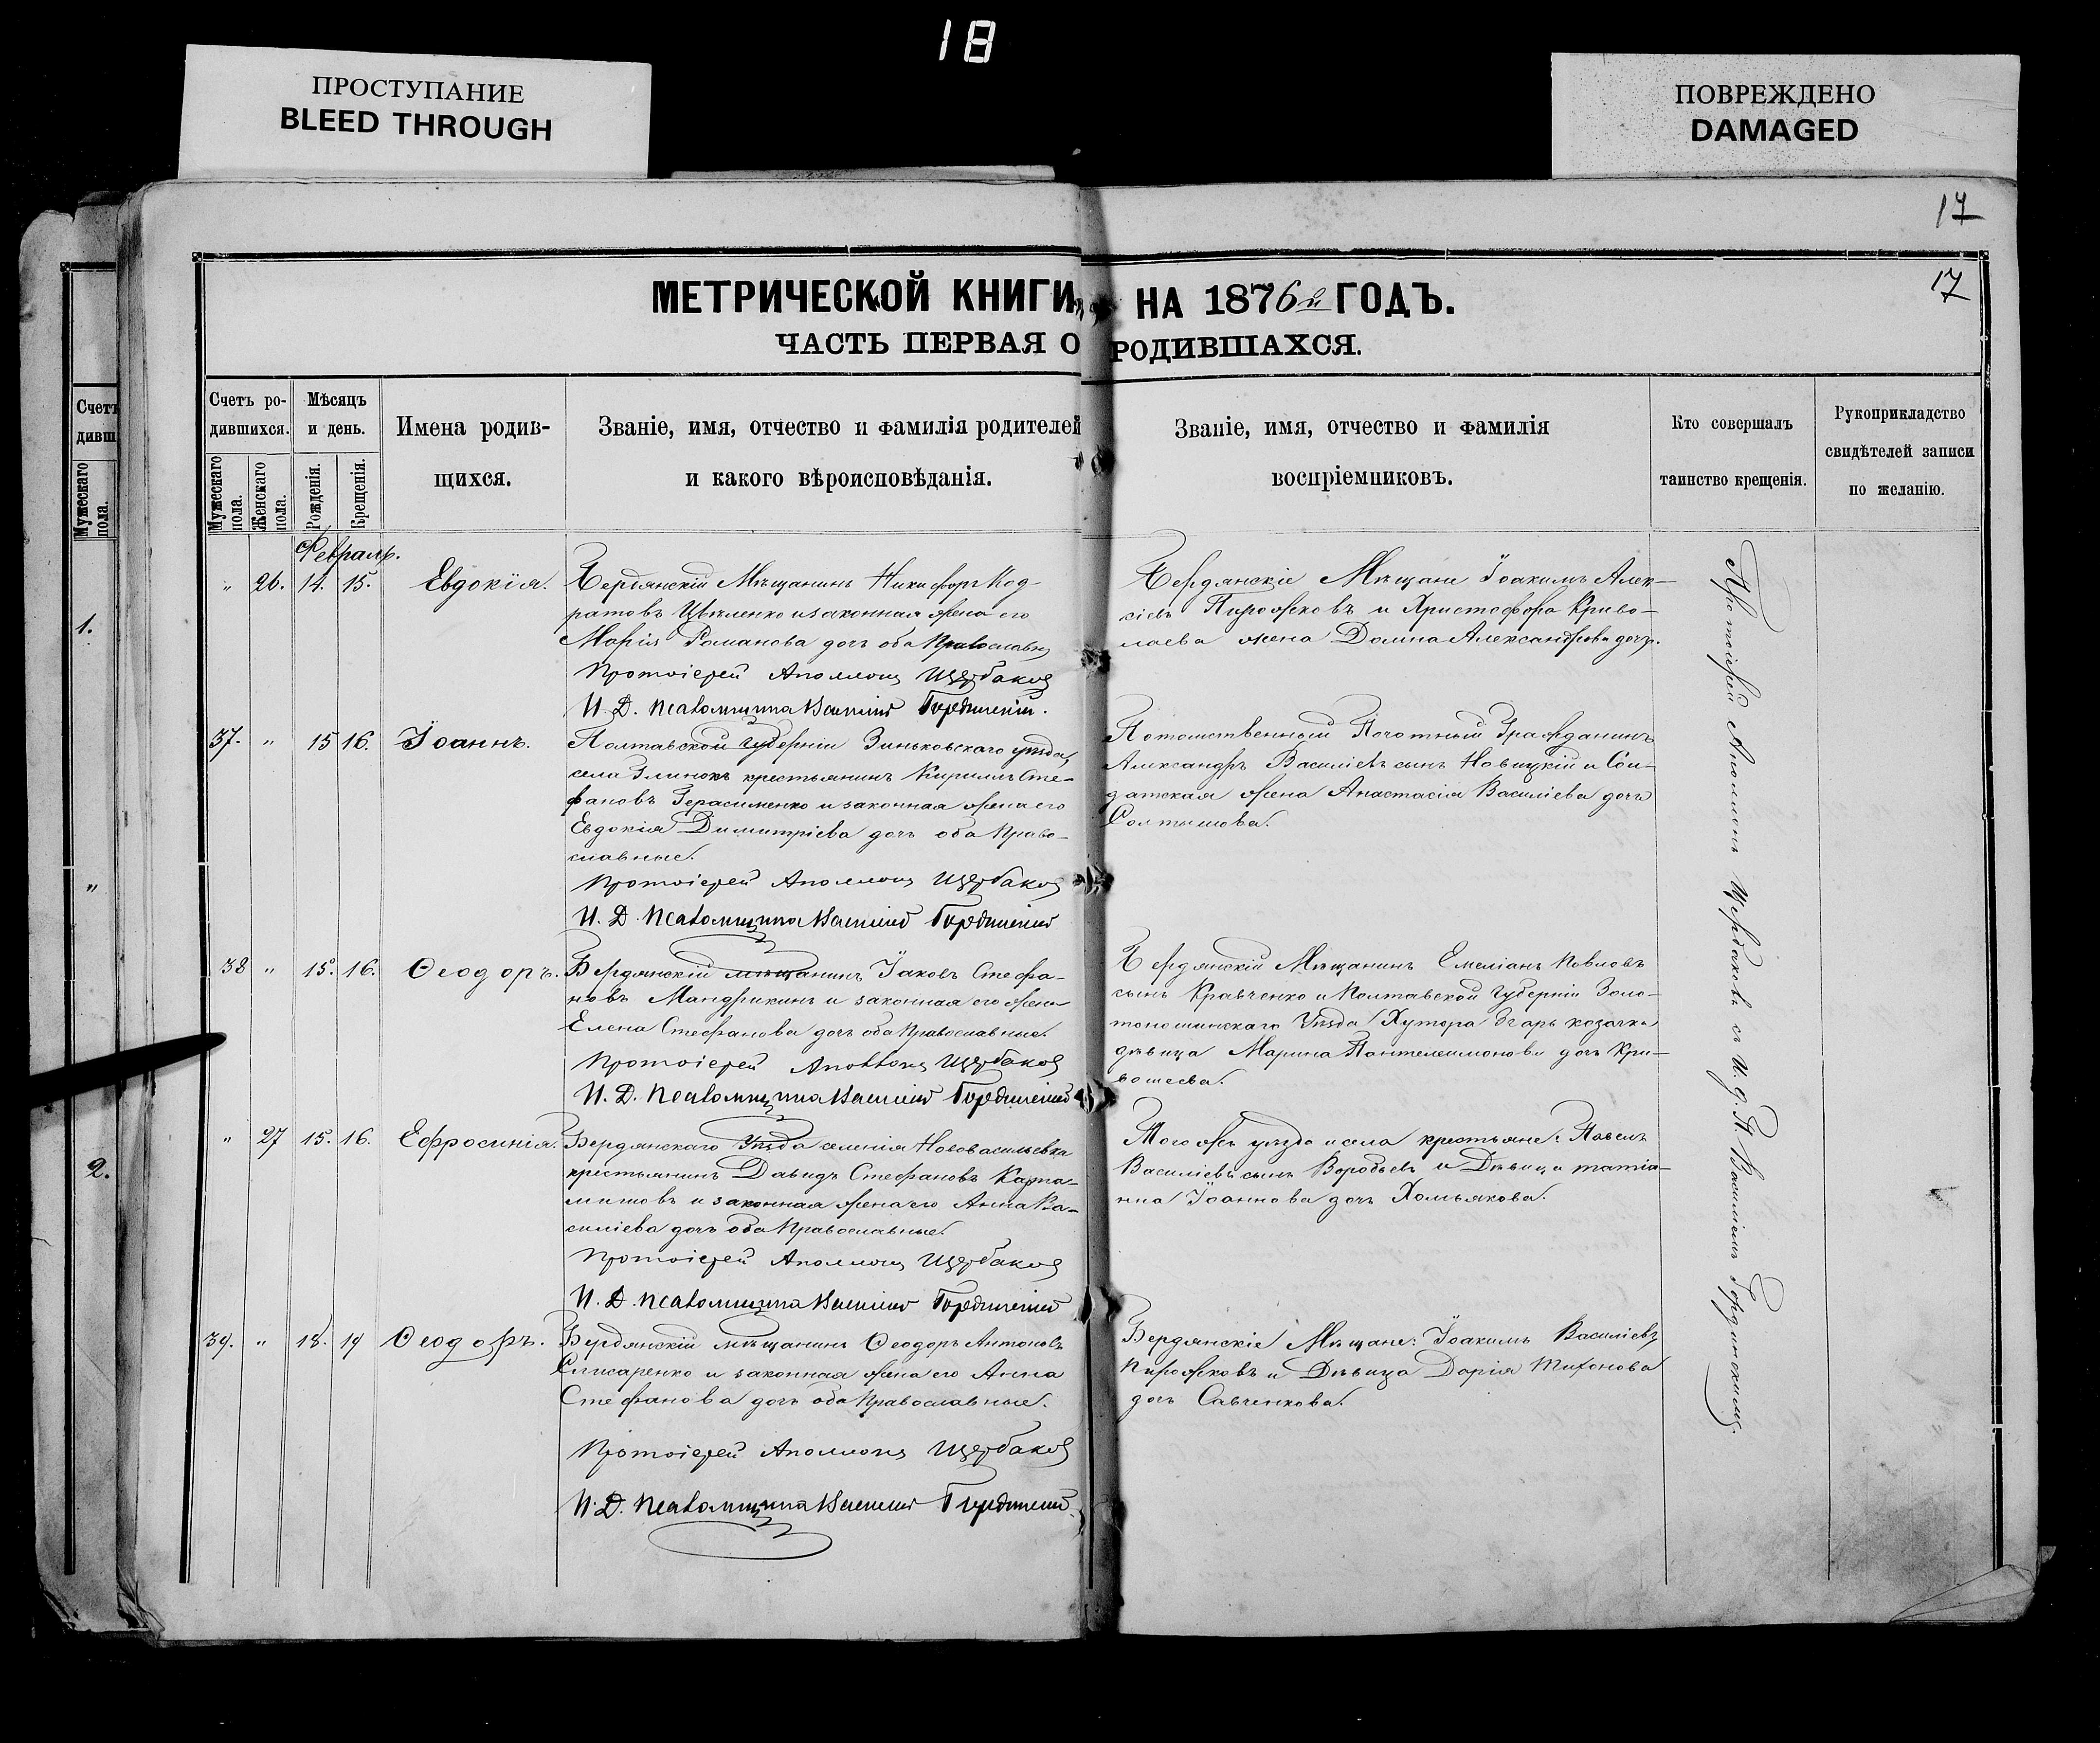 18
ПРОСТУПАНИЕ
BLEED THROUGH
ПОВРЕЖДЕНО
DAMAGED
17
17
МЕТРИЧЕСКОЙ КНИГИ НА 1876й ГОДЪ.
ЧАСТЬ ПЕРВАЯ О РОДИВШАХСЯ.
Счетъ
дивш
Мужескаго
пола.
1.
"
2.
Счетъ ро-
дившихся.
Мужескаго
пола.
Женскаго
пола.
Мѣсяцъ
и день.
Рожденія.
Крещенія.
Имена родив-
шихся.
Званіе, имя, отчество и фамилія родителей
и какого вѣроисповѣданія.
Званіе, имя, отчество и фамилія
воспріемниковъ.
Кто совершалъ
таинство крещенія.
Рукоприкладство
свидѣтелей записи
по желанію.
Февраль.
" 26. 14. 15. Евдокія.
Бердянскій Мѣщанинъ Никифоръ Код-
ратовъ Цѣленко и законная жена его
Марія Романова дочь оба Православн
Протоіерей Аполлонъ Щербаковъ
И. Д. Псаломщика Василій Гординскій.
Бердянскіе Мѣщане Іоакимъ Алек-
сіевъ Пирожковъ и Христофора Криво-
лаева жена Домна Александрова дочь.
37. " 15 16. Іоаннъ.
Полтавской губерніи Зиньковскаго уѣзда,
села крестьянинъ Кириллъ Сте-
фановъ Герасименко и законная жена его
Евдокія Димитріева дочь оба Право-
славные.
Протоіерей Аполлонъ Щербаковъ
И. Д. Псаломщика Василій Гординскій
Потомственный Почотный Гражданинъ
Александръ Василіевъ сынъ Новицкій и Сол-
датская жена Анастасія Василіева дочь
Солтышова.
38 " 15. 16. Ѳеодоръ.
Бердянскій мѣщанинъ Іаковъ Стефа-
новъ Мандрикинъ и законная его жена
Елена Стефанова дочь оба Православные.
Протоіерей Аполлонъ Щербаковъ
И. Д. Псаломщика Василій Гординскій
Бердянскій Мѣщанинъ Емеліанъ Повловъ
сынъ Кравченко и Полтавской Губерніи Золо-
тоношинскаго Уѣзда Хутора козачка
дѣвица Марина Пантелеимонова дочь Кри-
вошеева.
" 27 15. 16. Ефросинія.
Бердянскаго Уѣзда селенія Нововасильевки
крестьянинъ Давидъ Стефановъ
и законная жена его Анна Ва-
силіева дочь оба Православные.
Протоіерей Аполлонъ Щербаковъ
И. Д. Псаломщика Василій Гординскій
Того жъ уѣзда и села крестьяне: Павелъ
Василіевъ сынъ Воробьевъ и Дѣвица татіа-
нна Іоаннова дочь Хомьякова.
39. " 18. 19 Ѳеодоръ.
Бердянскій мѣщанинъ Ѳеодоръ Антоновъ
Слисаренко и законная жена его Анна
Стефанова дочь оба Православные.
Протоіерей Аполлонъ Щербаковъ
И. Д. Псаломщика Василій Гординскій.
Бердянскіе Мѣщане: Іоакимъ Василіевъ
Пирожковъ и Дѣвица Дарія Тихонова
дочь Савченкова.
Протоіерей Аполлонъ Щербаковъ съ И. д. П Василіемъ Гординскимъ.